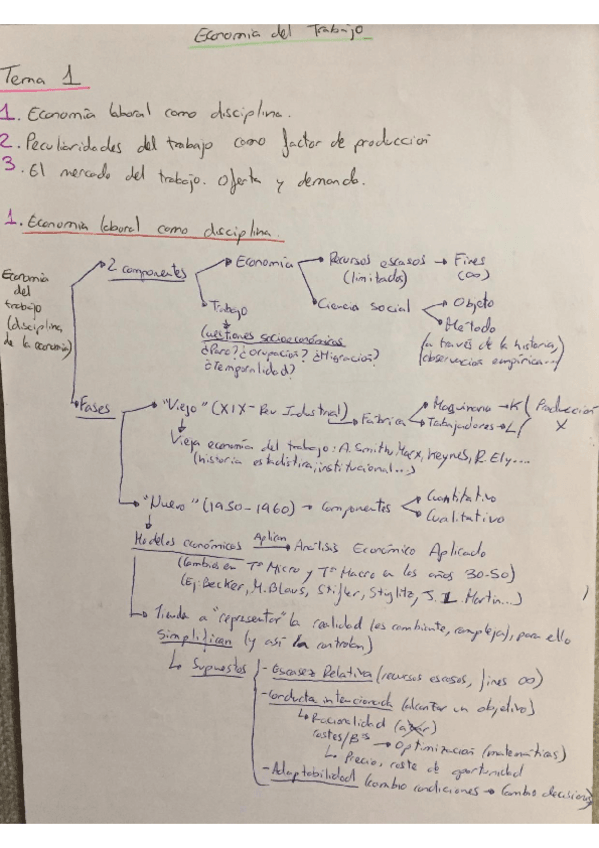 Economía del Trabajo
Tema 1
1. Economía laboral como disciplina.
2. Peculiaridades del trabajo como factor de producción
3. El mercado del trabajo. Oferta y demanda.
1. Economía laboral como disciplina.
Economía del trabajo (disciplina de la economía)
2 componentes → Economía → Recursos escasos (limitados) → Fines (∞)
→ Ciencia social → Objeto
→ Método
(a través de la historia,
observación empírica...)
→ Trabajo
Cuestiones socioeconómicas
¿Paro? ¿Ocupación? ¿Migración?
¿Temporalidad?
Fases → "Viejo" (XIX - Rev Industrial) → Fábrica → Maquinaria → K
→ Trabajadores → L
Producción
X
Vieja economía del trabajo: A. Smith, Marx, Keynes, R. Ely....
(historia estadística, institucional...)
→ "Nuevo" (1950-1960) → Componentes → Cuantitativo
→ Cualitativo
Modelos económicos Aplican → Análisis Económico Aplicado
(Cambios en Tª Micro y Tª Macro en los años 30-50)
(Ej: Becker, M. Blaus, Stigler, Styglitz, S. L. Martin...)
Tienda a "representar" la realidad (es cambiante, compleja), para ello
simplifican (y así la controlan)
↳ Supuestos
- Escasez Relativa (recursos escasos, fines ∞)
- Conducta intencionada (alcanzar un objetivo)
↳ Racionalidad (azar)
costes/Bºs → Optimización (matemáticas)
↳ Precio, coste de oportunidad
- Adaptabilidad (cambio condiciones → Cambio decisiones)